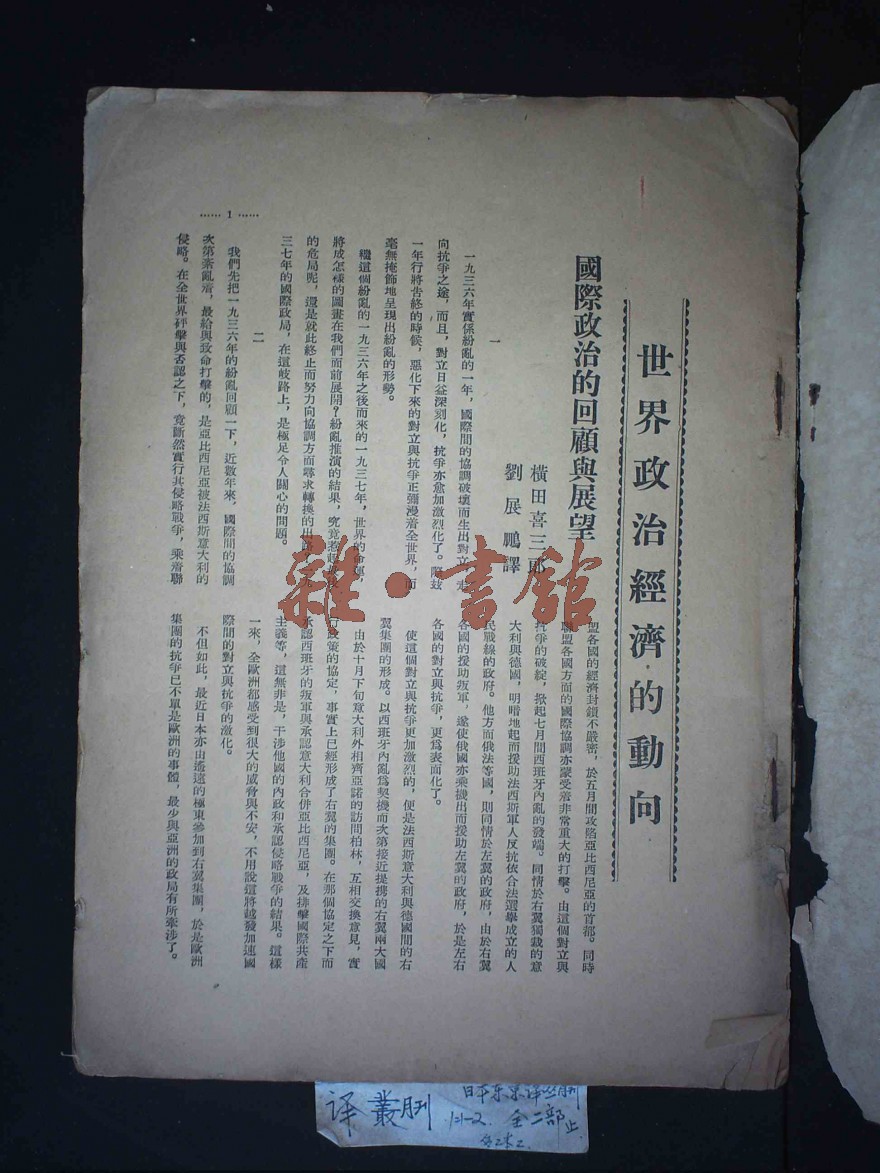 世界政治經濟的動向
國際政治的回顧與展望
橫田喜三郎
劉展鵬譯
一
一九三六年實係紛亂的一年，國際間的協調破壞而生出對立，走
向抗爭之途，而且，對立日益深刻化，抗爭亦愈加激烈化了。際茲
一年行將告終的時候，惡化下來的對立與抗爭正彌漫着全世界，而
毫無掩飾地呈現出紛亂的形勢。
繼這個紛亂的一九三六年之後而來的一九三七年，世界的命運，
將成怎樣的圖畫在我們面前展開？紛亂推演的結果，究竟惹起最後
的危局呢，還是就此終止而努力向協調方面尋求轉換的出路，一九
三七年的國際政局，在這歧路上，是極足令人關心的問題。
二
我們先把一九三六年的紛亂回顧一下，近數年來，國際間的協調
次第紊亂着，最給與致命打擊的，是亞比西尼亞被法西斯意大利的
侵略。在全世界砰擊與否認之下，竟斷然實行其侵略戰爭，乘着聯
盟各國的經濟封鎖不嚴密，於五月間攻陷亞比西尼亞的首都。同時
聯盟各國方面的國際協調亦蒙受着非常重大的打擊。由這個對立與
抗爭的破綻，掀起七月間西班牙內亂的發端。同情於右翼獨裁的意
大利與德國，明暗地起而援助法西斯軍人反抗依合法選舉成立的人
民戰線的政府。他方面俄法等國，則同情於左翼的政府，由於右翼
各國的援助叛軍，遂使俄國亦乘機出而援助左翼的政府，於是左右
各國的對立與抗爭，更爲表面化了。
使這個對立與抗爭更加激烈的，便是法西斯意大利與德國間的右
翼集團的形成。以西班牙內亂爲契機而次第接近提携的右翼兩大國
由於十月下旬意大利外相齊亞諾的訪問柏林，互相交換意見，實
行政策的協定，事實上已經形成了右翼的集團。在那個協定之下而
承認西班牙的叛軍與承認意大利合併亞比西尼亞，及排擊國際共產
主義等，這無非是，干涉他國的內政和承認侵略戰爭的結果。這樣
一來，全歐洲都感受到很大的威脅與不安，不用說這將越發加速國
際間的對立與抗爭的激化。
不但如此，最近日本亦由遙遠的極東參加到右翼集團，於是歐洲
集團的抗爭已不單是歐洲的事體，最少與亞洲的政局有所牽涉了。
…… 1 ……
雜·書館
译叢月刊
日本东京译丛月刊
1:1-2 全二部止